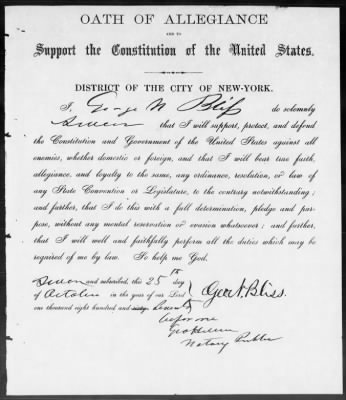 OATH OF ALLEGIANCE
AND TO
Support the Constitution of the United States.
DISTRICT OF THE CITY OF NEW-YORK.
I, George N. Bliss do solemnly
Swear that I will support, protect, and defend
the Constitution and Government of the United States against all
enemies, whether domestic or foreign, and that I will bear true faith,
allegiance, and loyalty to the same, any ordinance, resolution, or law of
any State Convention or Legislature, to the contrary notwithstanding;
and further, that I do this with a full determination, pledge and pur-
pose, without any mental reservation or evasion whatsoever; and further,
that I will well and faithfully perform all the duties which may be
required of me by law. So help me God.
Sworn and subscribed, this 25th day
of October in the year of our Lord
one thousand eight hundred and sixty seventy
Geo. N. Bliss.
before me
Notary Public